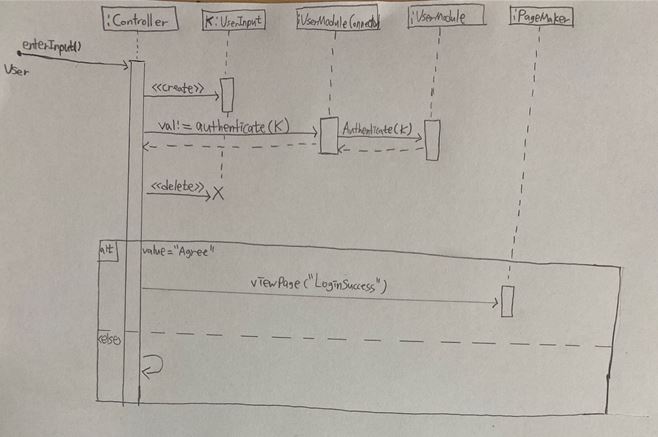 :Controller
K:UserInput
:UserModuleConnector
:UserModule
:PageMaker
enterInput()
User
<<create>>
val:= authenticate(K)
Authenticate(K)
<<delete>>
X
alt
value="Agree"
viewPage("LoginSuccess")
<else>